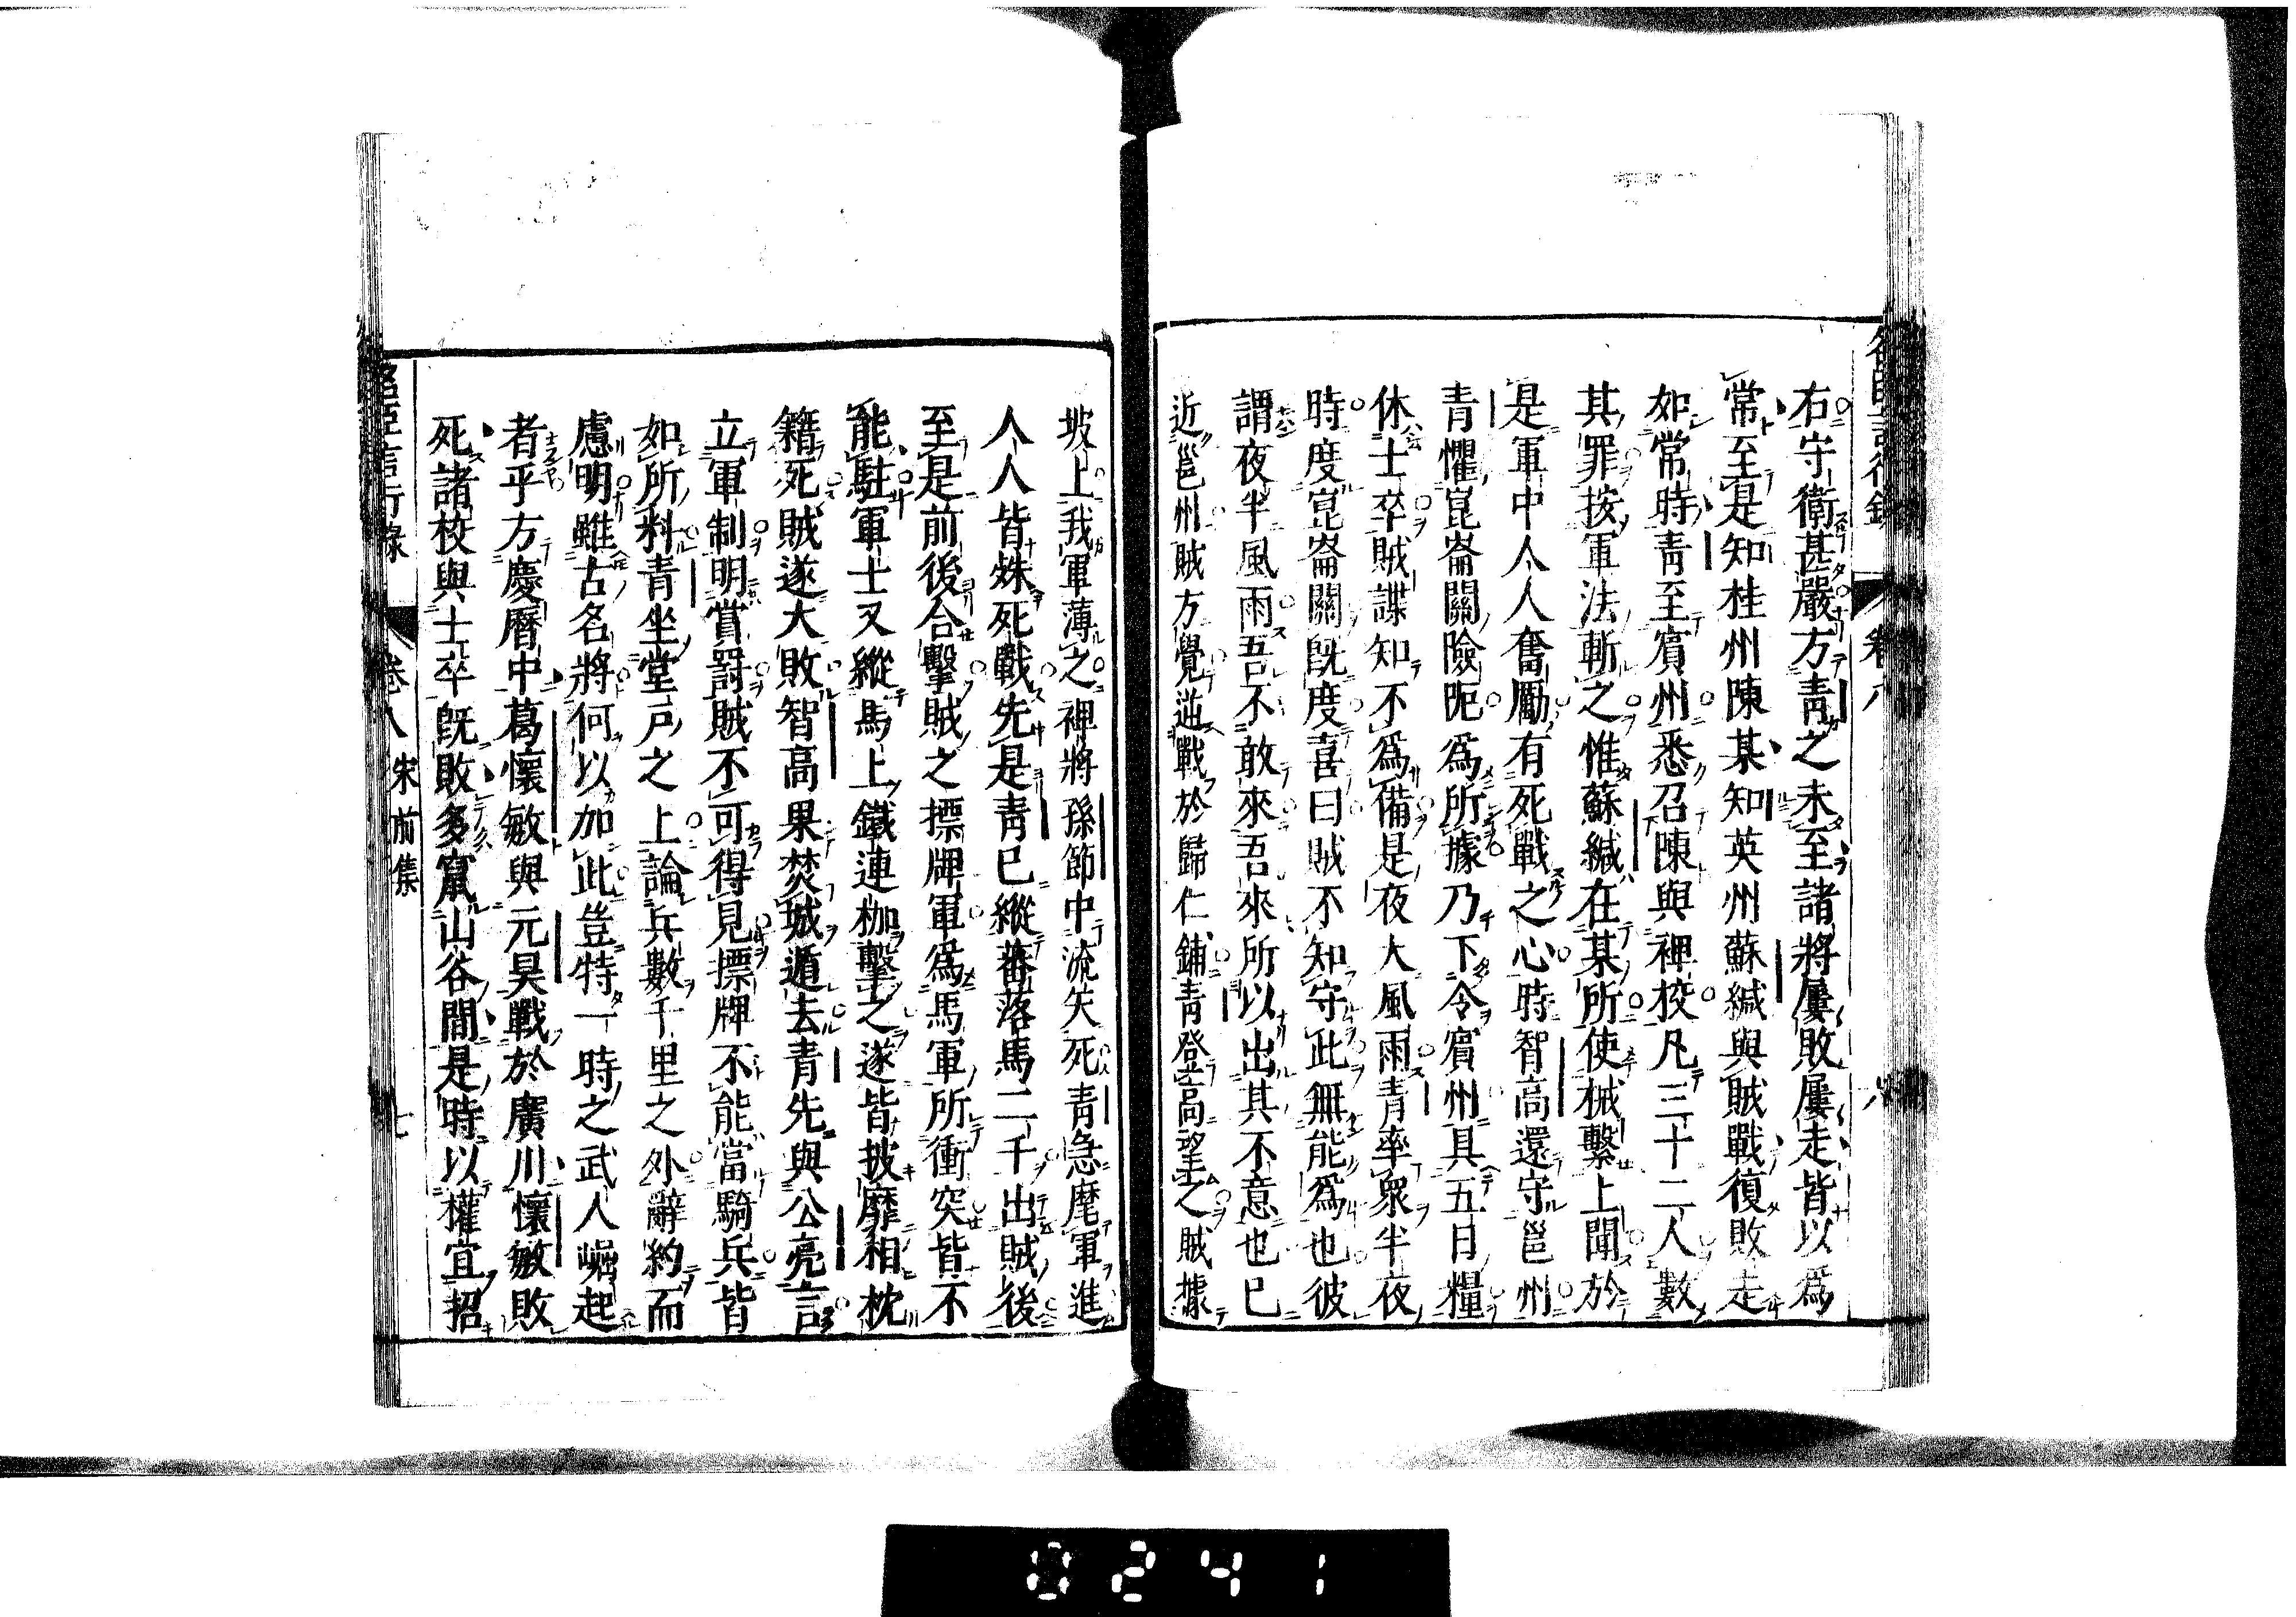 右守衛甚嚴方青之未至諸將屢敗屢走皆以爲
常至是知桂州陳某知英州蘇緘與賊戰復敗走
如常時青至賓州悉召陳與裨校凡三十二人數
其罪按軍法斬之惟蘇緘在某所使械繫上聞於
是軍中人人奮勵有死戰之心時智高還守邕州
青懼崑崙關險阨爲所據乃下令賓州具五日糧
休士卒賊諜知不爲備是夜大風雨青率衆半夜
時度崑崙關既度喜曰賊不知守此無能爲也彼
謂夜半風雨吾不敢來吾來所以出其不意也已
近邕州賊方覺逆戰於歸仁鋪青登高望之賊據
坡上我軍薄之裨將孫節中流矢死青急麾軍進
人人皆殊死戰先是青已縱蕃落馬二千出賊後
至是前後合擊賊之摽牌軍爲馬軍所衝突皆不
能駐軍士又縱馬上鐵連枷擊之遂皆披靡相枕
籍死賊遂大敗智高果焚城遁去青先與公亮言
立軍制明賞罰賊不可得見摽牌不能當騎兵皆
如所料青坐堂戶之上論兵數千里之外辭約而
慮明雖古名將何以加此豈特一時之武人崛起
者乎方慶曆中葛懷敏與元昊戰於廣川懷敏敗
死諸校與士卒既敗多竄山谷間是時以權宜招
名臣言行錄 卷八 宋前集 七
0241